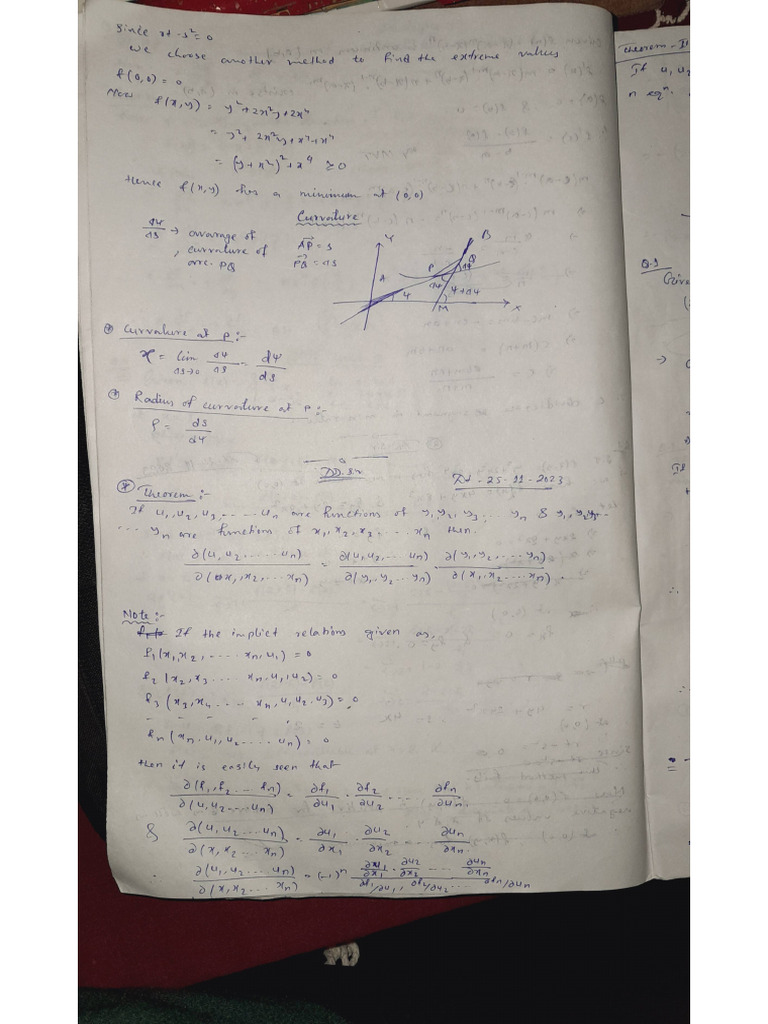 Since rt - s² = 0
we choose another method to find the extreme values
f(0,0) = 0
Now f(x,y) = y² + 2x²y + 2x⁴
= y² + 2x²y + x⁴ + x⁴
= (y + x²)² + x⁴ ≥ 0
Hence f(x,y) has a minimum at (0,0)
Curvature
ΔΨ/ΔS → avarage of
curvature of
arc PQ
AP = S
PQ = ΔS
Y
B
Q
P
A
ΔΨ
Ψ
Ψ+ΔΨ
M
X
* Curvature at P:-
ϰ = lim ΔS→0 ΔΨ/ΔS = dΨ/dS
* Radius of curvature at P:-
ρ = dS/dΨ
Dt - 25-11-2023
* Theorem:-
If u₁, u₂, u₃, ..... uₙ are functions of y₁, y₂, y₃ ... yₙ & y₁, y₂, y₃...
... yₙ are functions of x₁, x₂, x₃ .... xₙ then.
∂(u₁ u₂ ..... uₙ)/∂(x₁, x₂, ... xₙ) = ∂(u₁, u₂, ... uₙ)/∂(y₁, y₂ ... yₙ) · ∂(y₁, y₂, ... yₙ)/∂(x₁, x₂ ... xₙ).
Note:-
If the implict relations given as,
f₁(x₁, x₂, .... xₙ, u₁) = 0
f₂(x₂, x₃ .... xₙ, u₁, u₂) = 0
f₃(x₃, x₄ .... xₙ, u₁, u₂, u₃) = 0
- - - - -
fₙ(xₙ, u₁, u₂ ..... uₙ) = 0
then it is easily seen that
∂(f₁, f₂ ... fₙ)/∂(u₁, u₂ ... uₙ) = ∂f₁/∂u₁ · ∂f₂/∂u₂ ... ∂fₙ/∂uₙ
& ∂(u₁, u₂ .... uₙ)/∂(x₁, x₂ ... xₙ) = ∂u₁/∂x₁ · ∂u₂/∂x₂ ∂uₙ/∂xₙ
∴ ∂(u₁, u₂ ... uₙ)/∂(x₁, x₂ ... xₙ) = (-1)ⁿ
Theorem - II
If u₁, u₂
n eqⁿ
Q.1